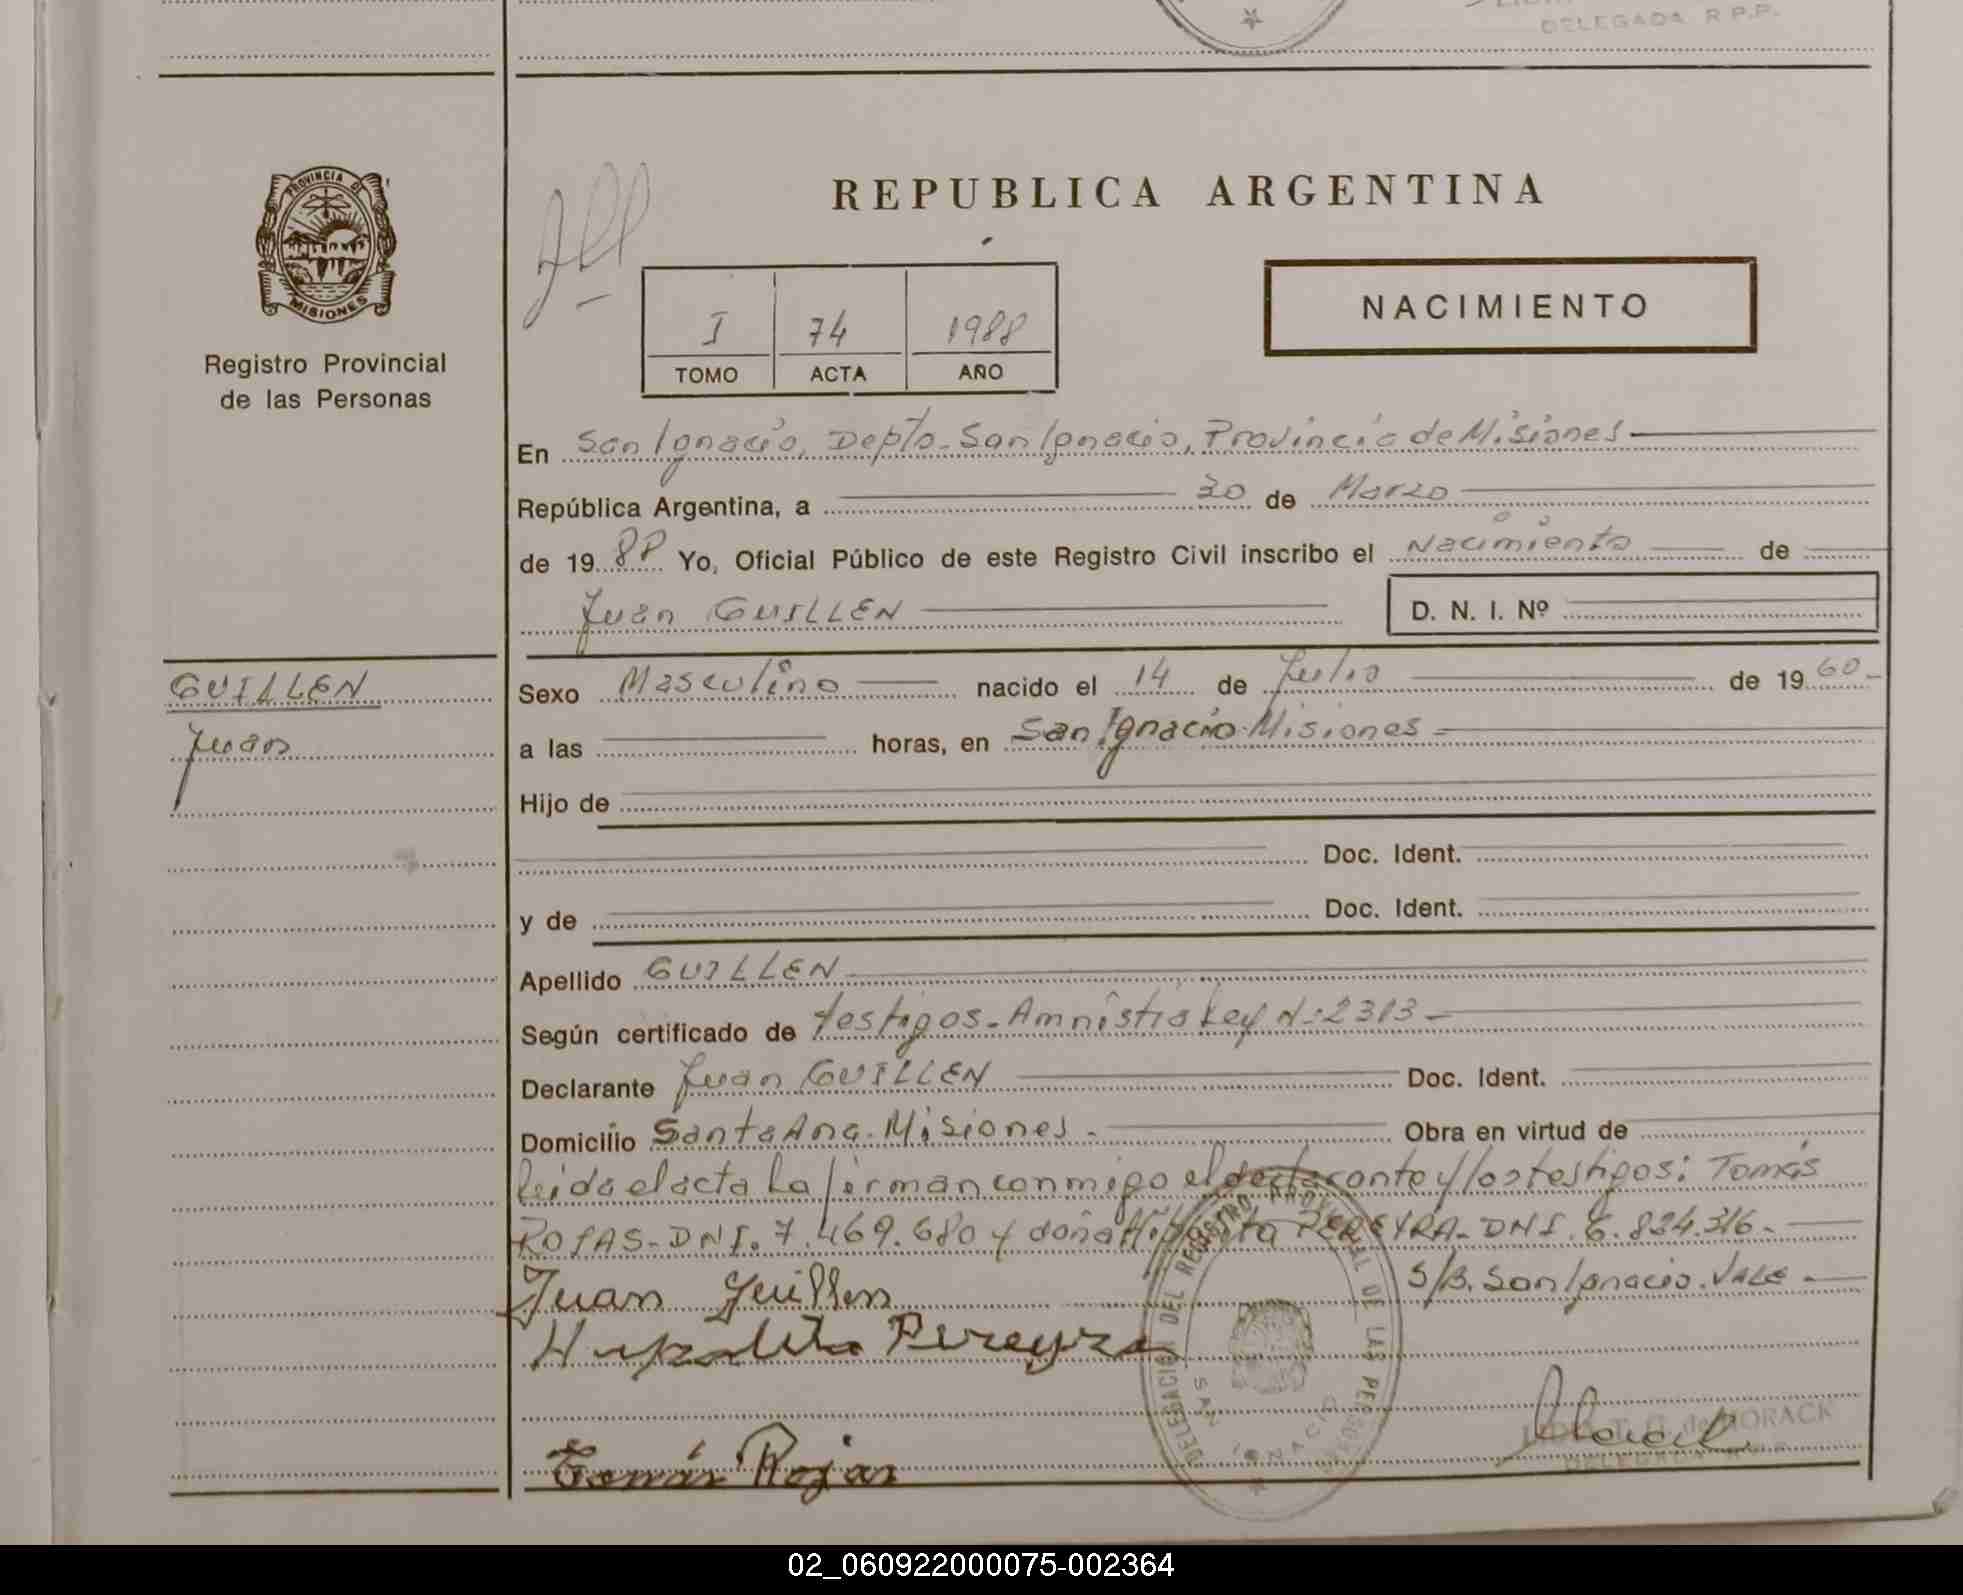 DELEGADA R.P.P.
PROVINCIA DE
MISIONES
Registro Provincial
de las Personas
REPUBLICA ARGENTINA
NACIMIENTO
I 74 1988
TOMO ACTA AÑO
En San Ignacio, Depto. San Ignacio, Provincia de Misiones
República Argentina, a 30 de Marzo
de 1988 Yo, Oficial Público de este Registro Civil inscribo el Nacimiento de
Juan GUILLEN D. N. I. Nº
GUILLEN
Juan
Sexo Masculino nacido el 14 de Julio de 1960
a las horas, en San Ignacio Misiones
Hijo de
Doc. Ident.
y de Doc. Ident.
Apellido GUILLEN
Según certificado de testigos. Amnistia Ley Nº 2313
Declarante Juan GUILLEN Doc. Ident.
Domicilio Santa Ana. Misiones. Obra en virtud de
leida el acta la firman conmigo el declarante y los testigos: Tomás
ROJAS-DNI. 7.469.680 y doña Hipolita PEREYRA-DNI. 6.824.316.
S/B. San Ignacio. VALE.
Juan Guillen
Hupolita Pereyra
Tomás Rojas
DELEGACION DEL REGISTRO PROVINCIAL DE LAS PERSONAS
SAN IGNACIO
T. G. de HORACK
DELEGADA
02_060922000075-002364